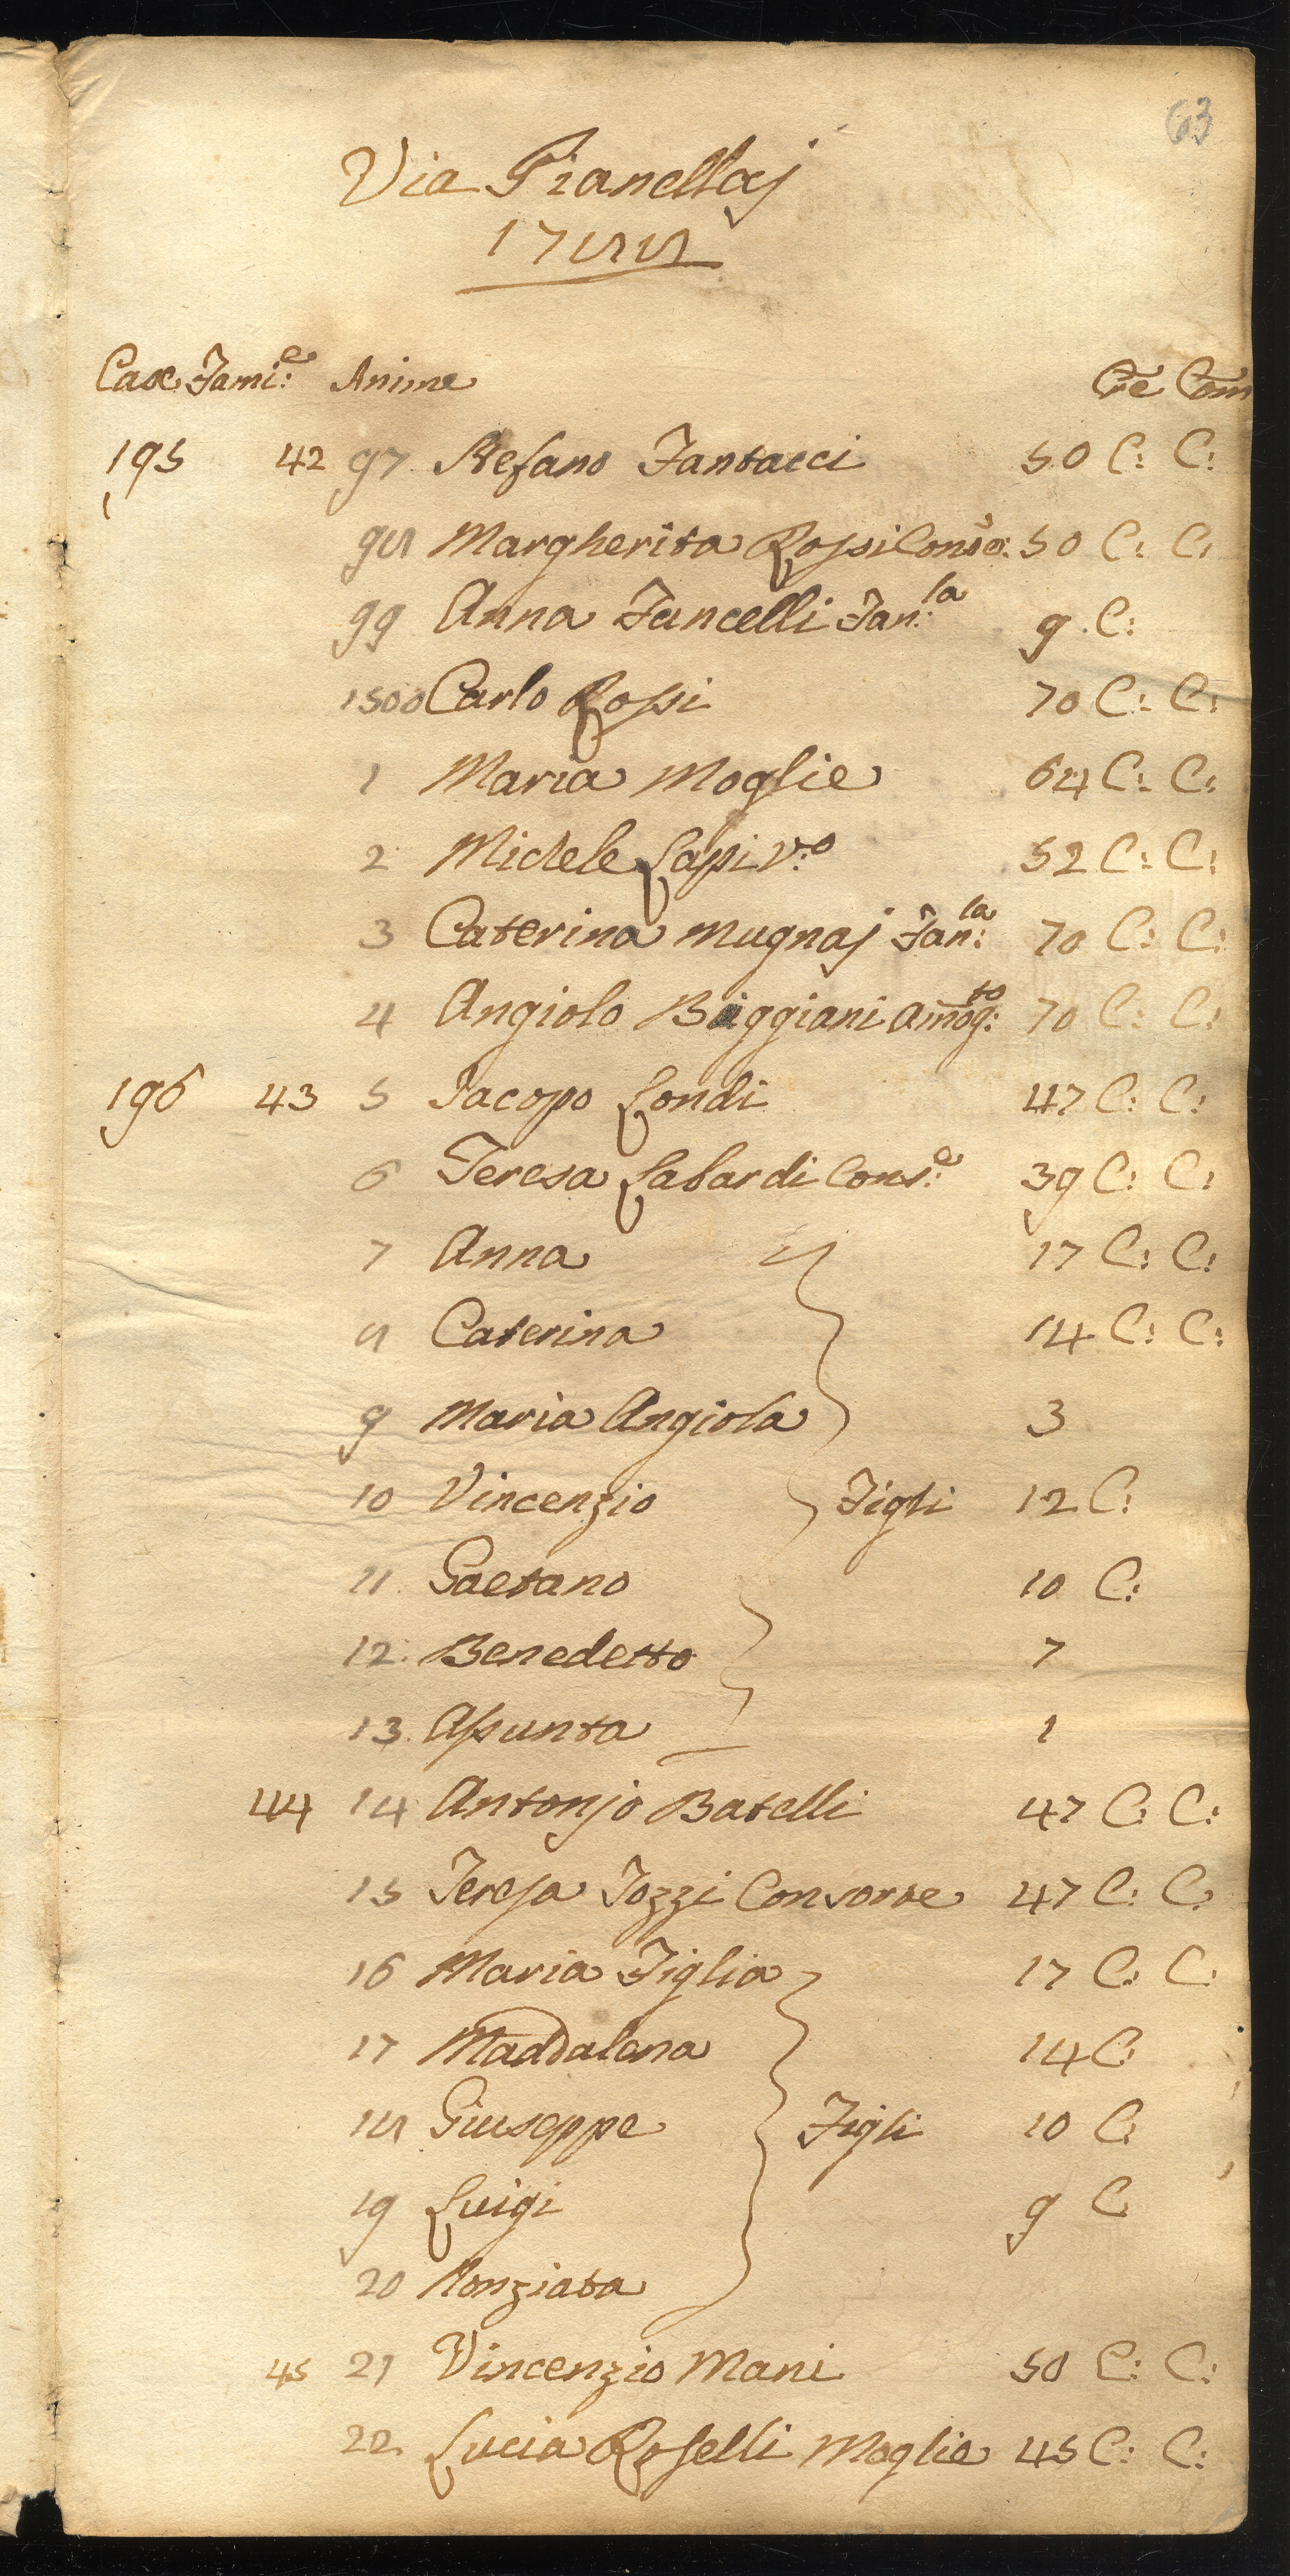 63
Via Pianellaj
1788
Case Fami:e Anime Cre Com
195 42 97 Stefano Fantacci 50 C: C:
98 Margherita Rossi Cons:e 50 C: C:
99 Anna Fancelli Fan:la 9 C:
1500 Carlo Rossi 70 C: C:
1 Maria Moglie 64 C: C:
2 Michele Lapi V:o 52 C: C:
3 Caterina Mugnaj Fan:la 70 C: C:
4 Angiolo Biggiani Amog:to 70 C: C:
196 43 5 Jacopo Londi 47 C: C:
6 Teresa Labardi Cons:e 39 C: C:
7 Anna 17 C: C:
8 Caterina 14 C: C:
9 Maria Angiola 3
10 Vincenzio Figli 12 C:
11 Gaetano 10 C:
12 Benedetto 7
13 Assunta 1
44 14 Antonjo Batelli 47 C: C:
15 Teresa Tozzi Consorte 47 C: C:
16 Maria Figlia 17 C: C:
17 Maddalena 14 C:
18 Giuseppe Figli 10 C
19 Luigi 9 C
20 Nonziata
45 21 Vincenzio Mani 50 C: C:
22 Lucia Roselli Moglie 45 C: C: